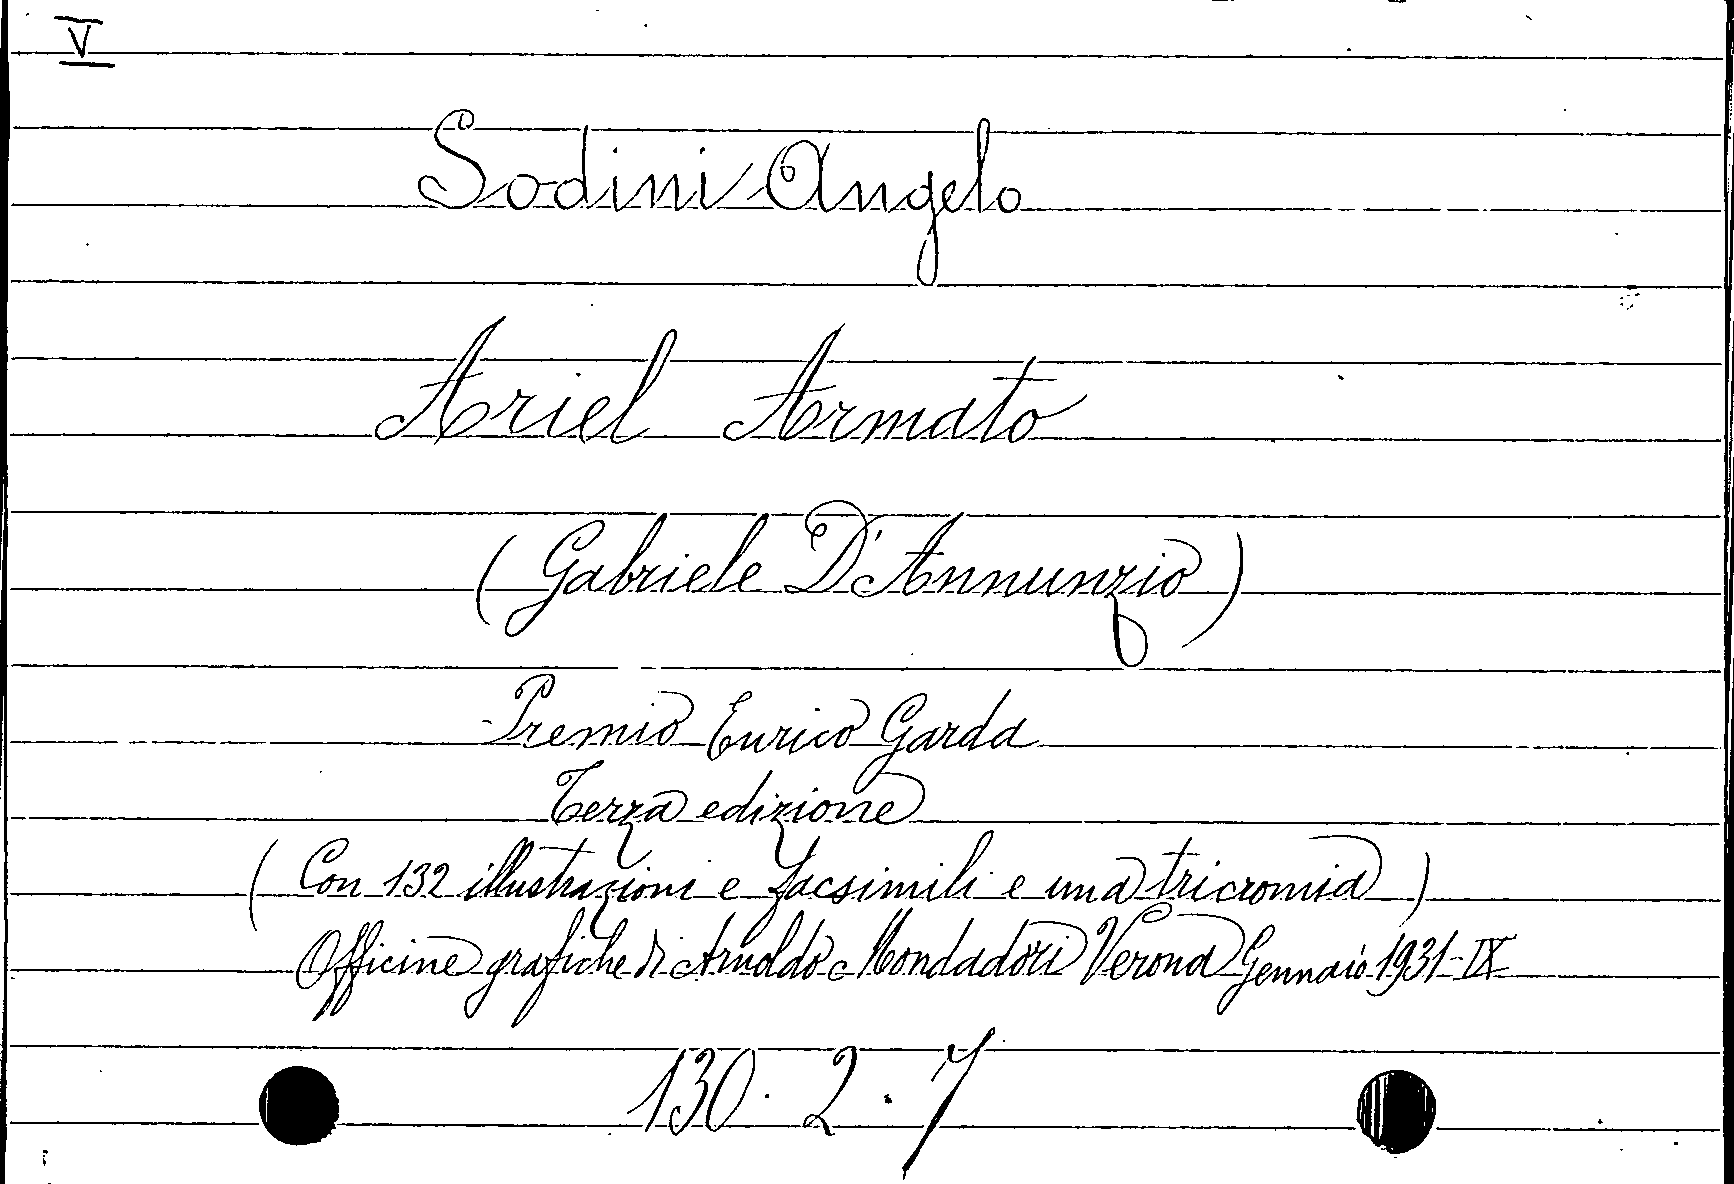 V
Sodini Angelo
Ariel Armato
(Gabriele D'Annunzio)
Premio Enrico Garda
Terza edizione
(Con 132 illustrazioni e facsimili e una tricromia)
Officine grafiche di Arnoldo Mondadori Verona Gennaio 1931-IX
130. 2. 7